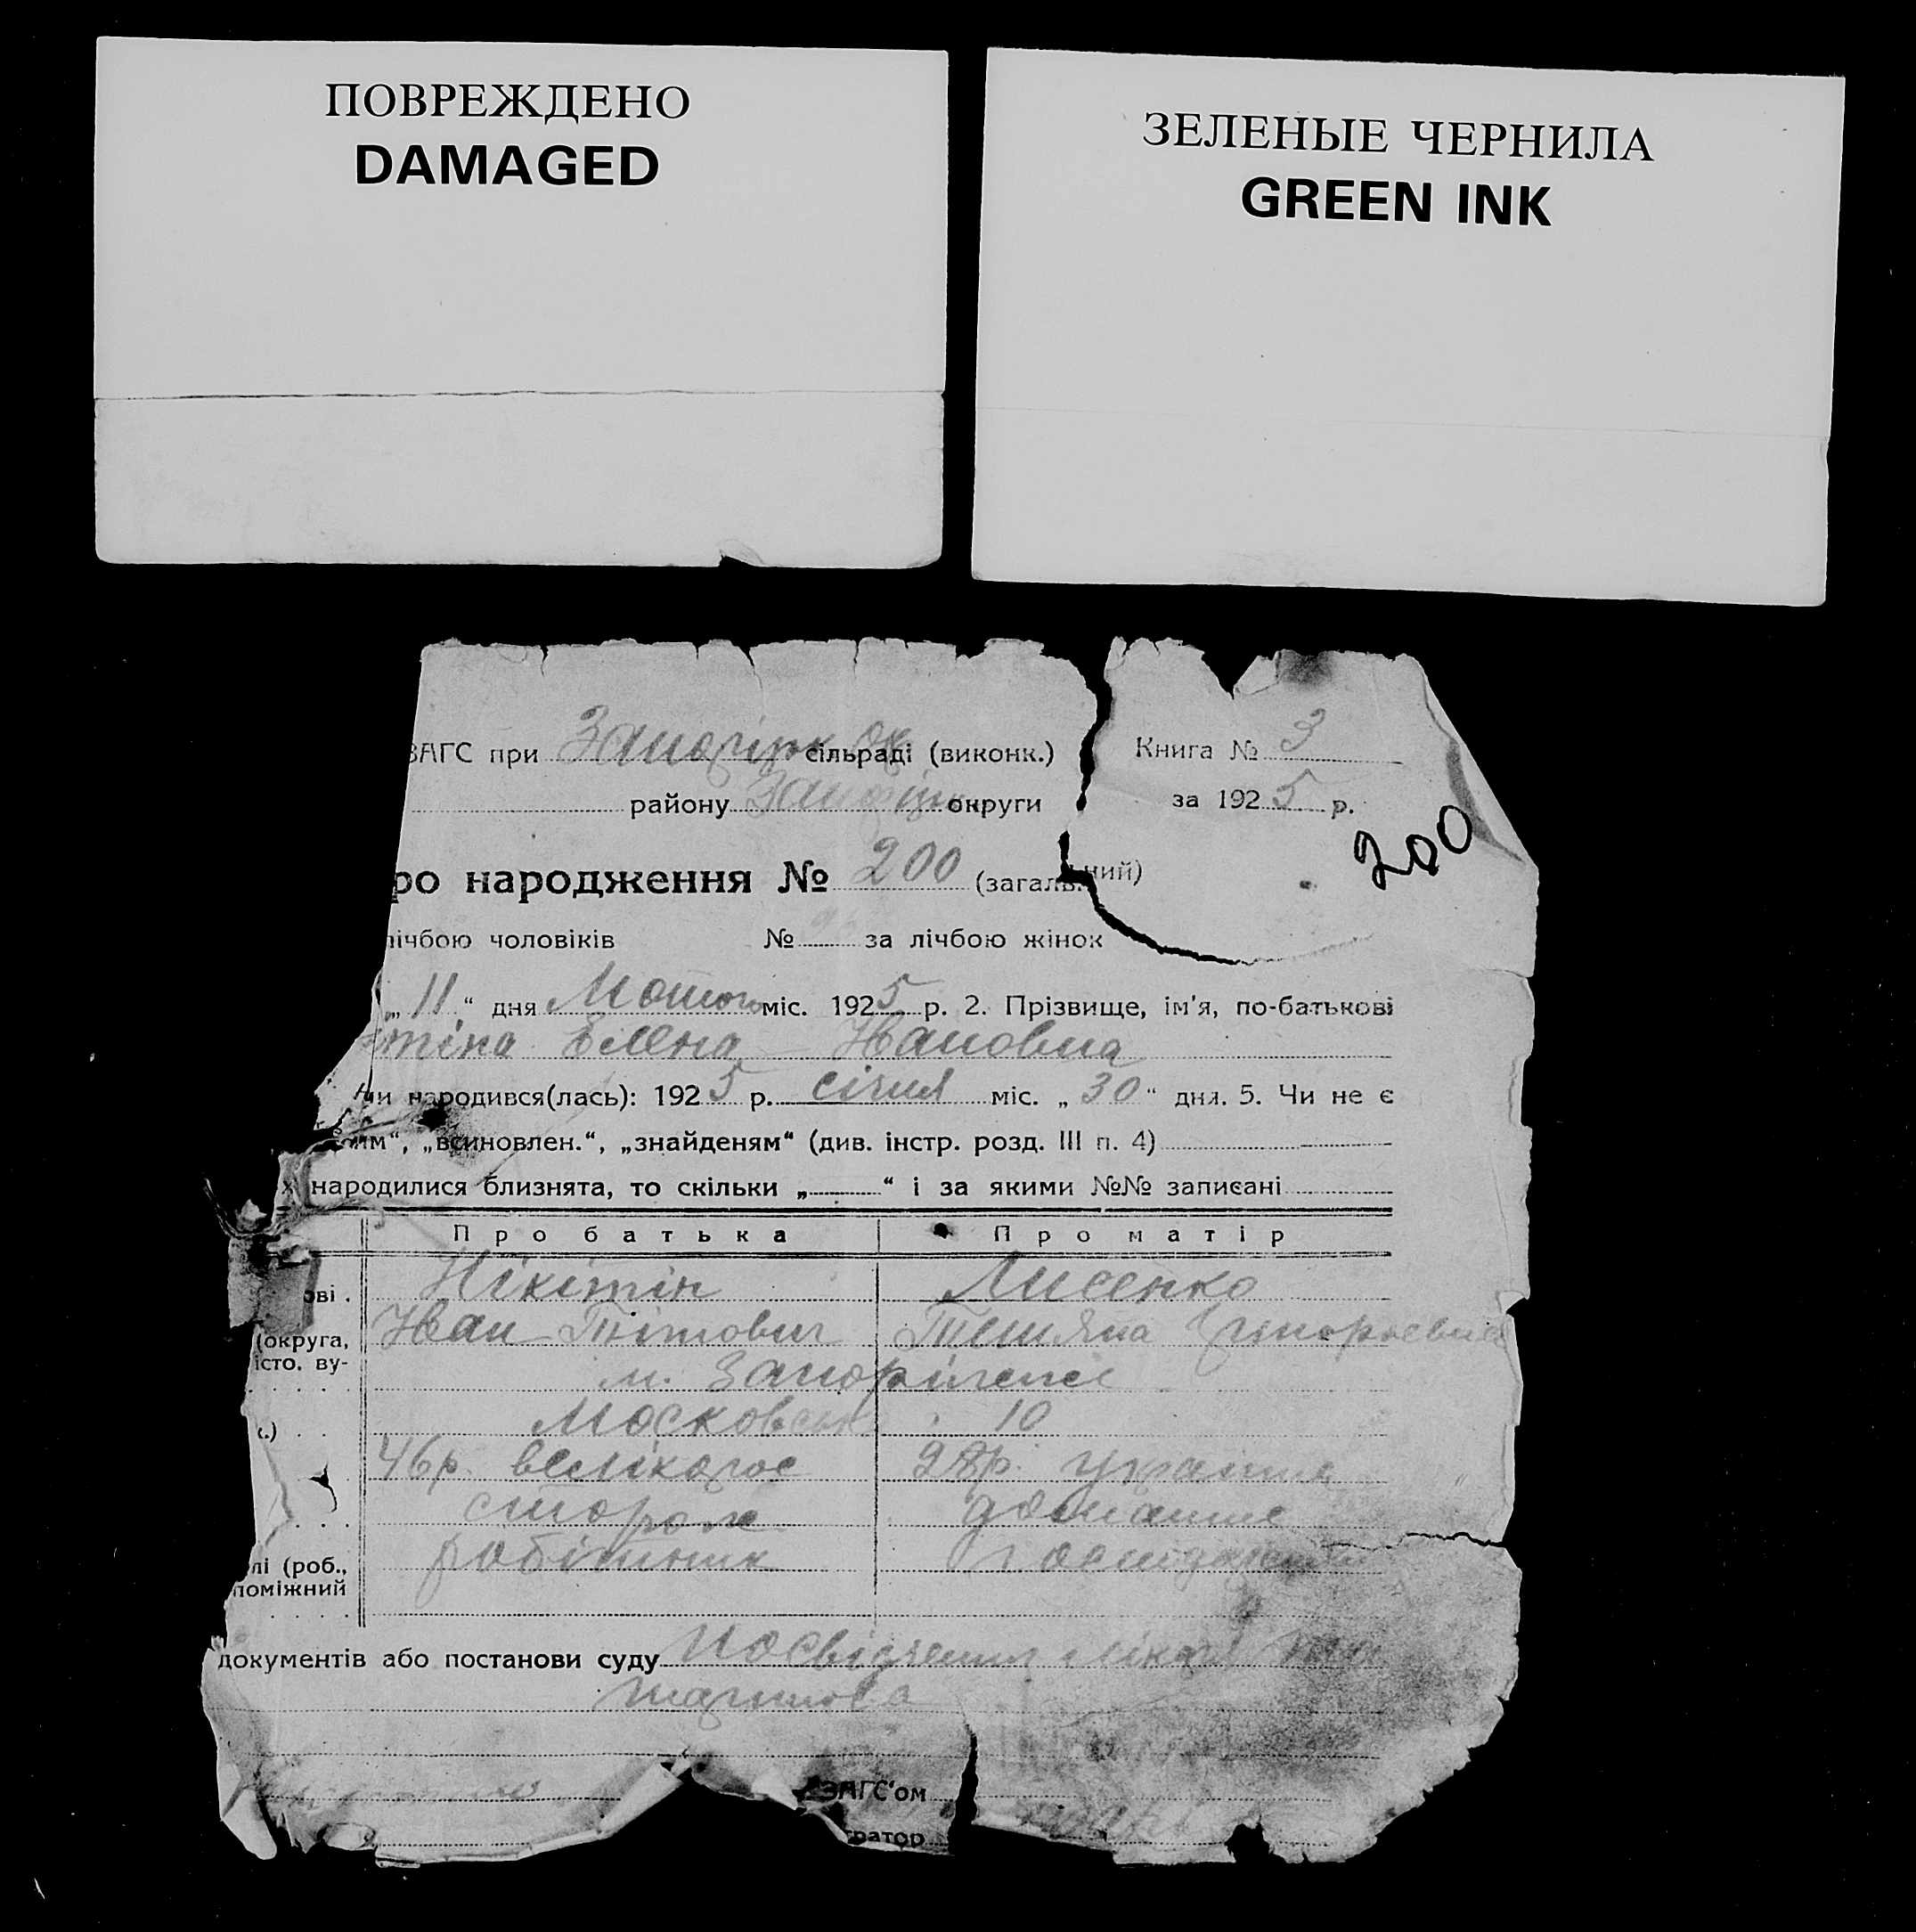 ПОВРЕЖДЕНО
DAMAGED
ЗЕЛЕНЫЕ ЧЕРНИЛА
GREEN INK
ЗАГС при сільраді (виконк.) Книга № 3
району округи за 1925 р.
200
ро народження № 200 (загальний)
лічбою чоловіків № за лічбою жінок
„11“ дня Лютого міс. 1925 р. 2. Прізвище, ім'я, по-батькові
тіна Елена Івановна
чи народився(лась): 1925 р. січня міс. „30“ дня. 5. Чи не є
“, „всиновлен.“, „знайденям“ (див. інстр. розд. III п. 4)
народилися близнята, то скільки „ “ і за якими №№ записані
Про батька Про матір
ові . Нікітін Лисенко
(округа, Іван Тітович Тетяна
істо. ву- м. Запоріжжя
Московськ 10
46р. велікорос 28р.
сторож домашне
лі (роб., робітник
поміжний
документів або постанови суду Посвідчення лікаря та
ЗАГС'ом
тратор